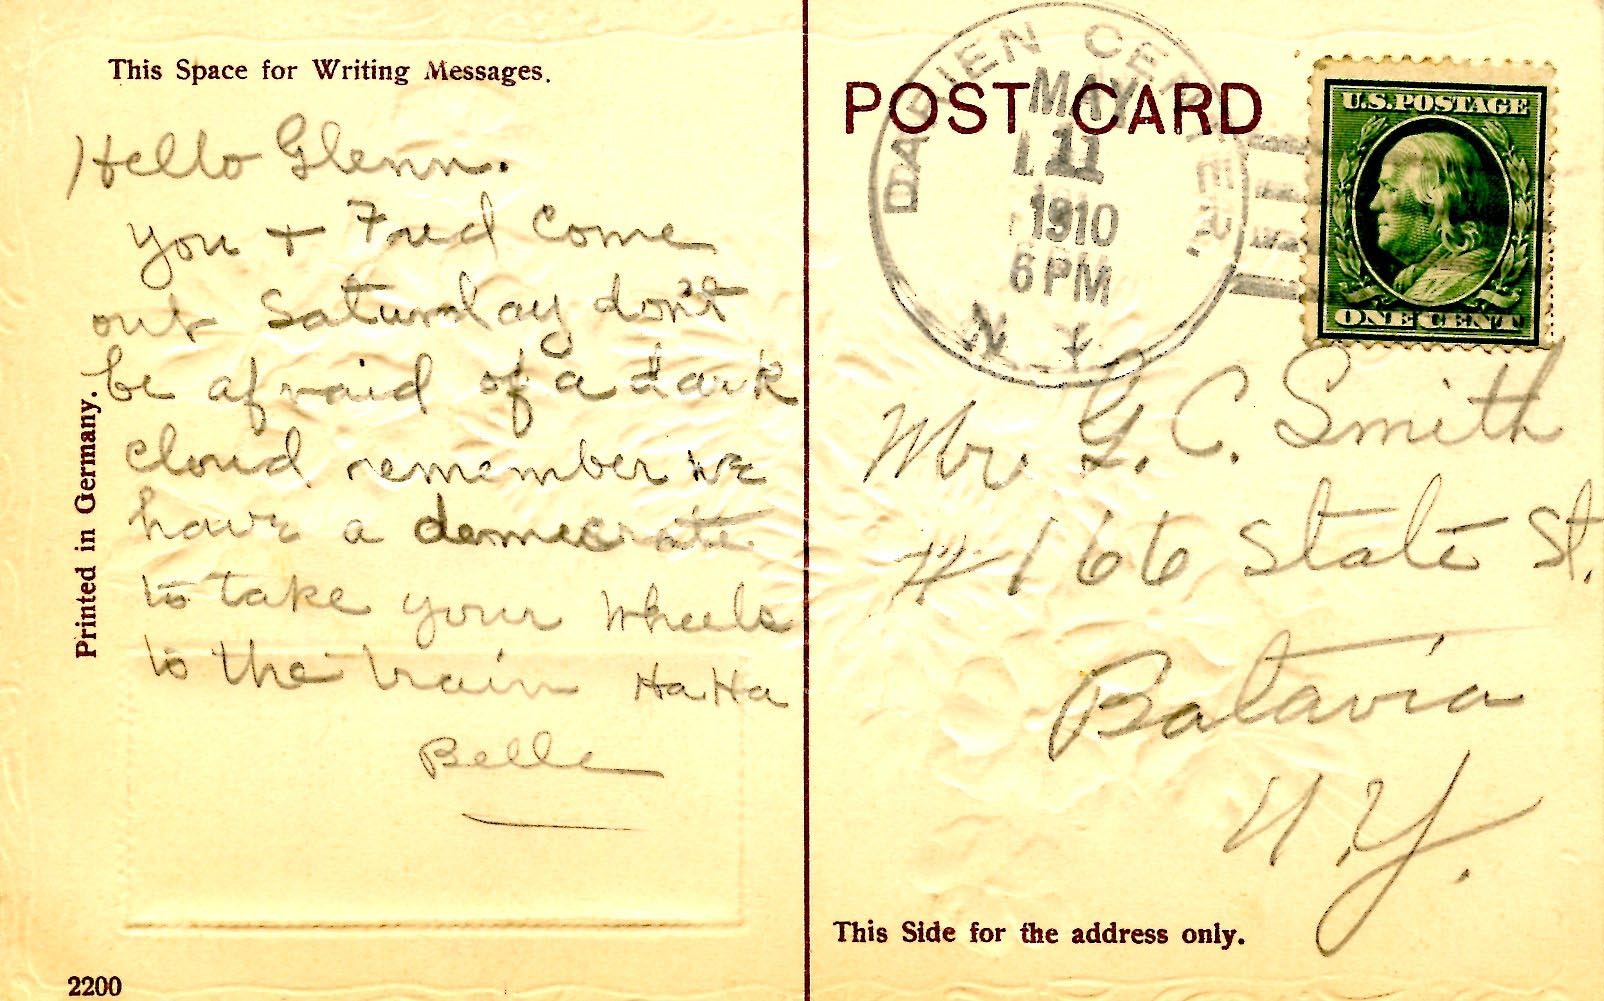 This Space for Writing Messages.
Hello Glenn.
you + Fred Come
out Saturday don't
be afraid of a dark
cloud remember we
have a democrate
to take your wheels
to the train Ha Ha
Belle
Printed in Germany.
2200
POST CARD
DARIEN CENTER.
MAY
11
1910
6 PM
N. Y.
U.S. POSTAGE
ONE CENT
Mr. G. C. Smith
# 166 State St.
Batavia
N.Y.
This Side for the address only.